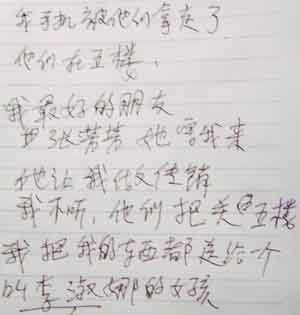 我手机被他们拿走了
他们在五楼、
我最好的朋友
叫张芳芳 她害我来
她让我做传销
我不听,他们把关五楼
我把我的东西都送给个
叫李淑娜的女孩